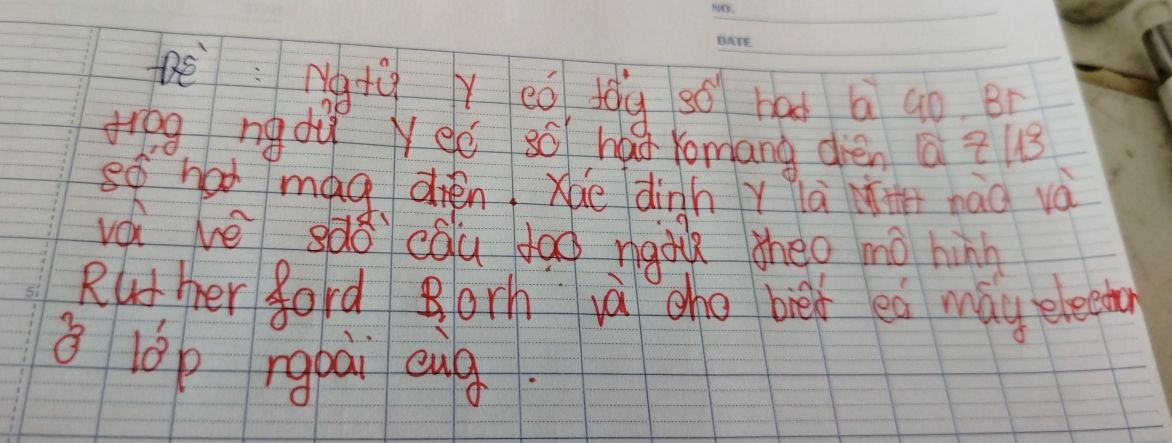 NO.
DATE
Đề : Ngtử Y có tổg số hạt là 40. Br
trog ngtử Y có số hạt komang điện là 7/13
số hạt mag điện. Xác định Y là NTHH nào và
và vẽ sđồ cấu tạo ngtử theo mô hình
Rutherford Borh và cho biết có mấy electron
ở lớp ngoài cùg.